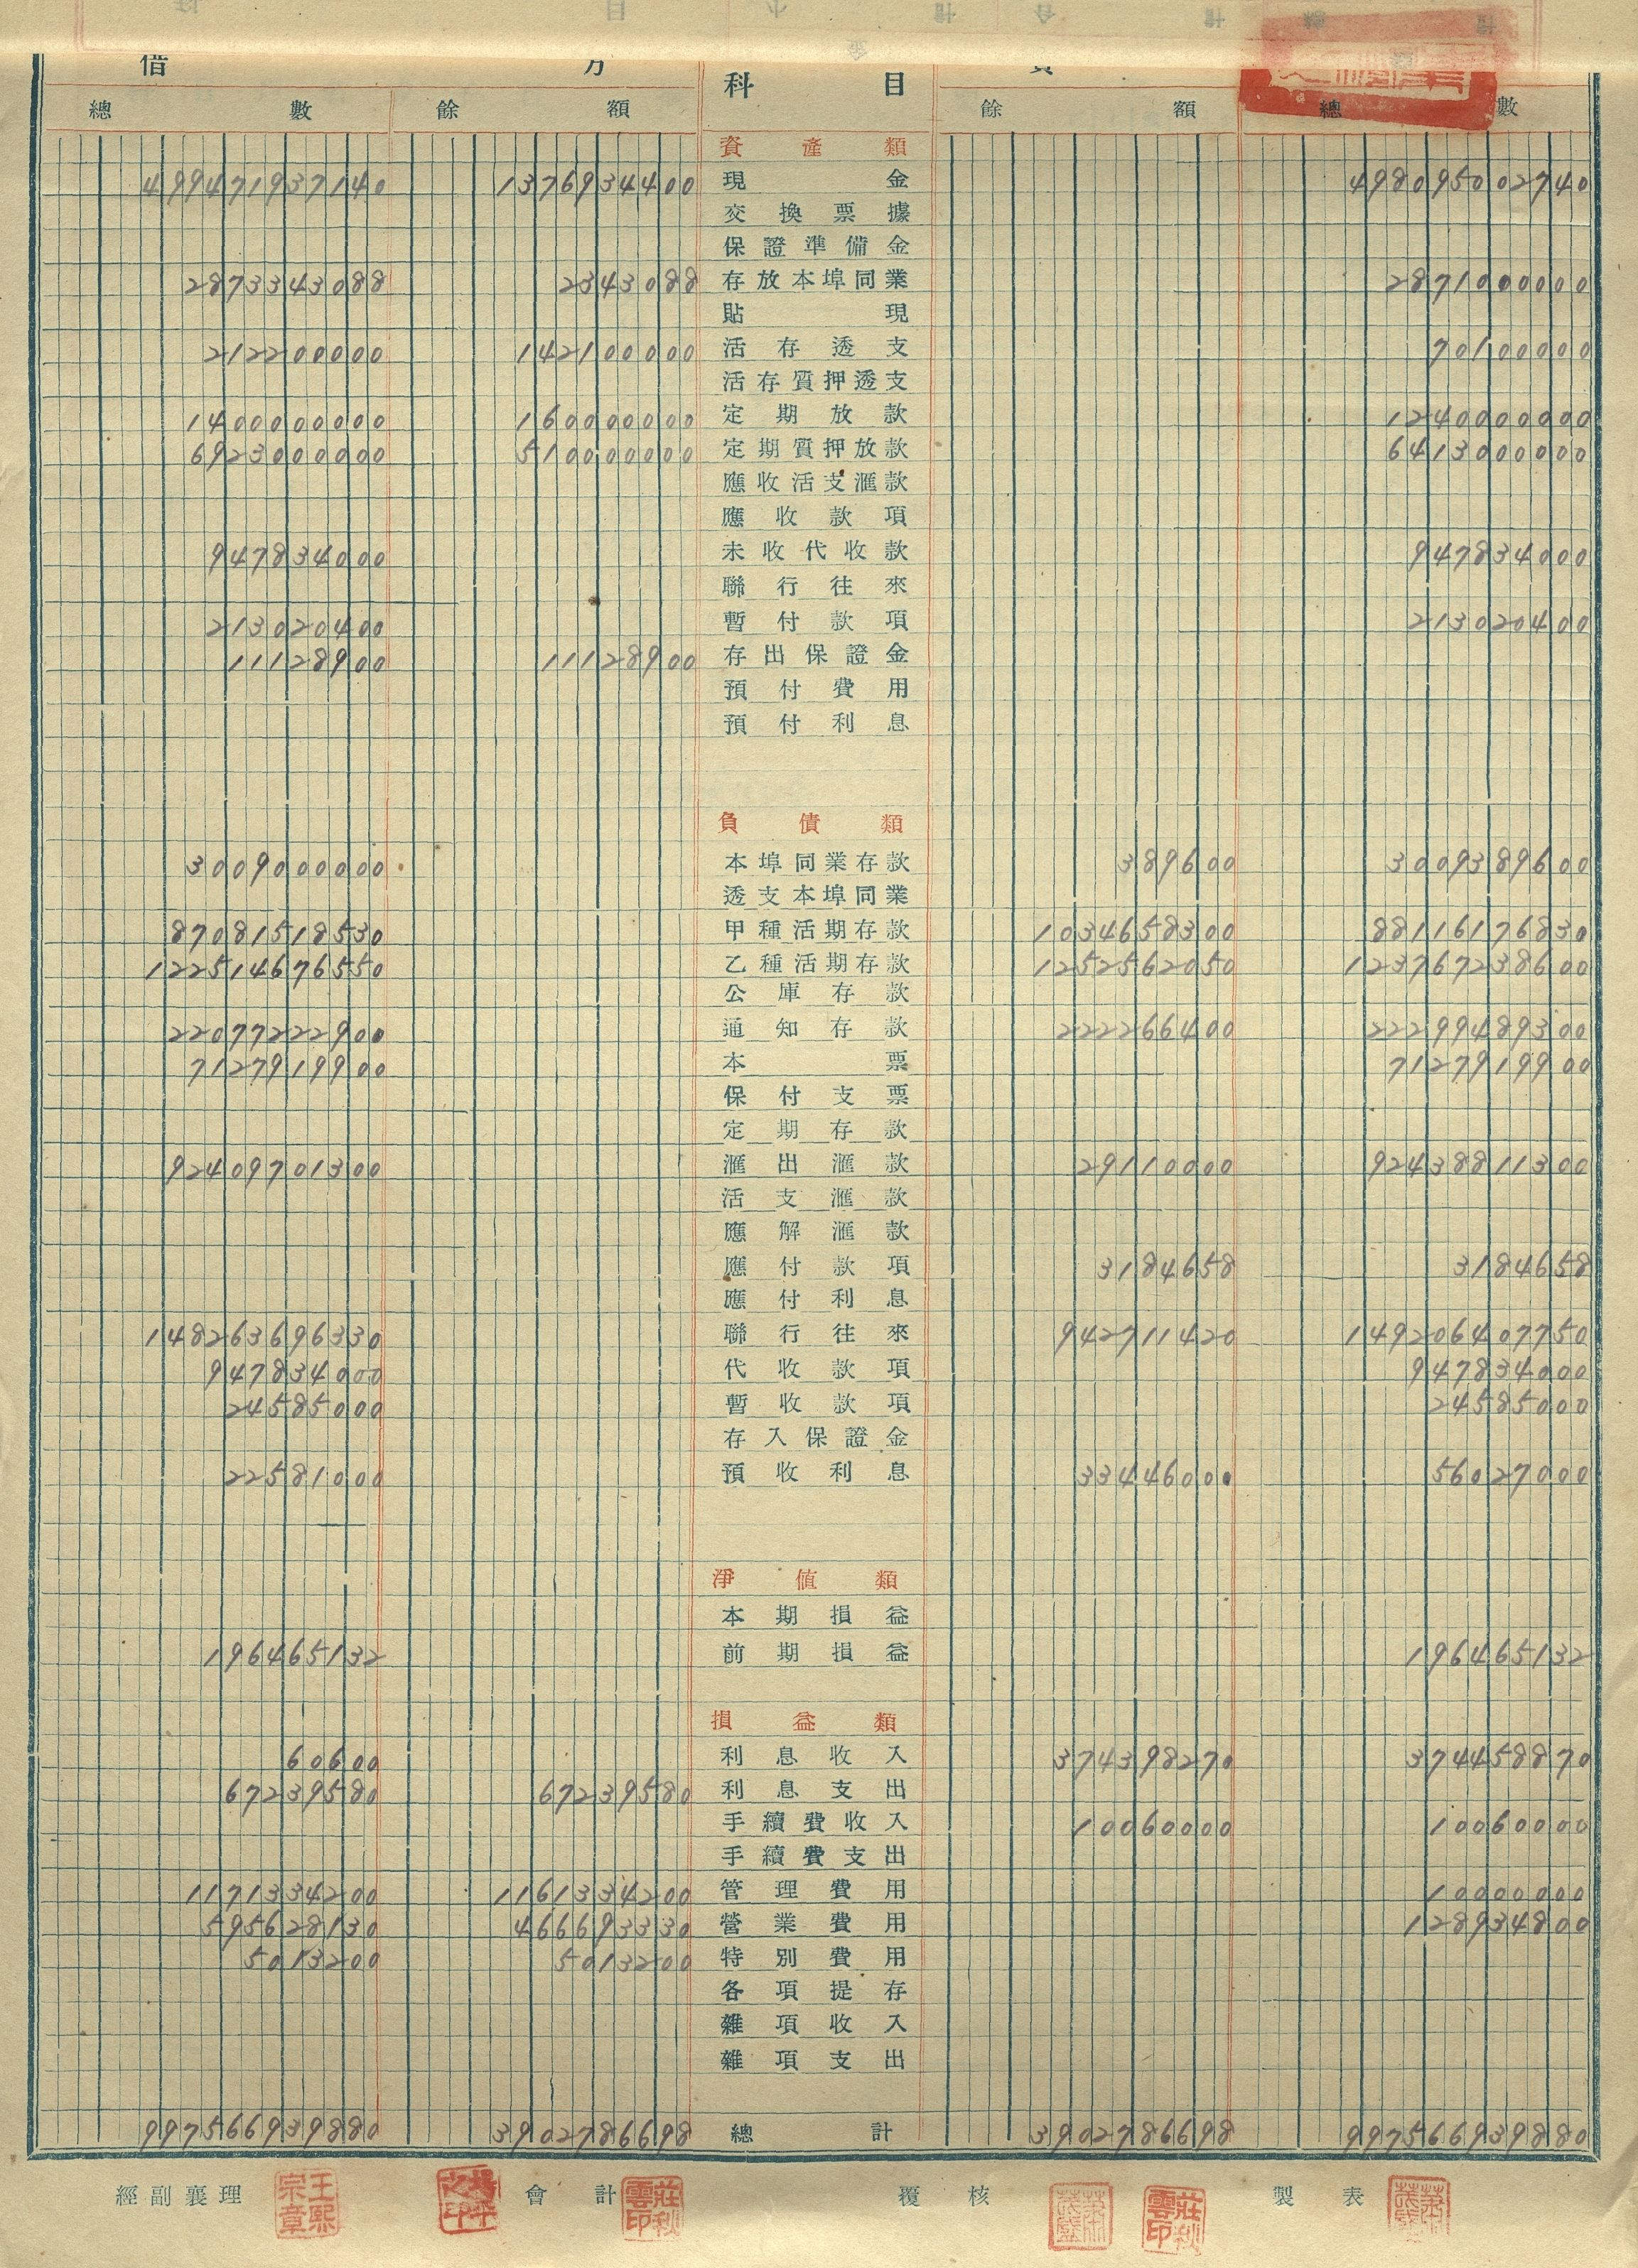 借 方 科 目
總 數 餘 額 餘 額 總 數
資產類
499471937140 1376934400 現金 498095002740
交換票據
保證準備金
2873343088 2343088 存放本埠同業 2871000000
貼現
212200000 142100000 活存透支 70100000
活存質押透支
1400000000 160000000 定期放款 1240000000
6923000000 510000000 定期質押放款 6413000000
應收活支滙款
應收款項
947834000 未收代收款 947834000
聯行往來
213020400 暫付款項 213020400
11128900 11128900 存出保證金
預付費用
預付利息
負債類
3009000000 本埠同業存款 389600 3009389600
透支本埠同業
87081518530 甲種活期存款 1034658300 88116176830
122514676550 乙種活期存款 1252562050 123767238600
公庫存款
22077222900 通知存款 222266400 22299489300
7127919900 本票 7127919900
保付支票
定期存款
92409701300 滙出滙款 29110000 92438811300
活支滙款
應解滙款
應付款項 3184658 3184658
應付利息
148263696330 聯行往來 942711420 149206407750
947834000 代收款項 947834000
24585000 暫收款項 24585000
存入保證金
22581000 預收利息 33446000 56027000
淨值類
本期損益
196465132 前期損益 196465132
損益類
60600 利息收入 374398270 374458870
67239580 67239580 利息支出
手續費收入 10060000 10060000
手續費支出
1171334200 1161334200 管理費用 10000000
595628130 466693330 營業費用 128934800
5013200 5013200 特別費用
各項提存
雜項收入
雜項支出
997566939880 3902786698 總計 3902786698 997566939880
經副襄理 王熙宗章 會計 莊秋雲印 覆核 莊秋雲印 製表